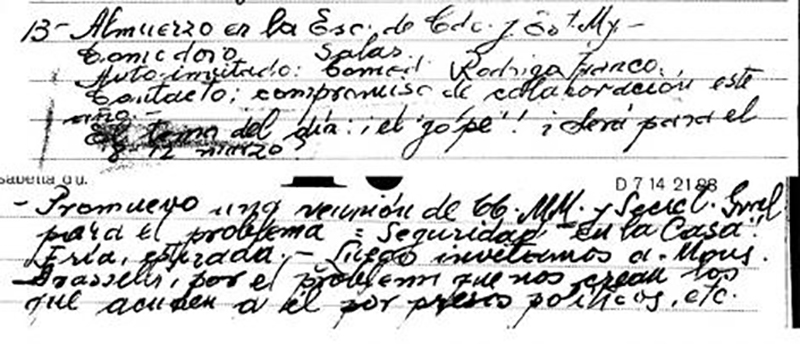 13- Almuerzo en la Esc. de Cdo. y Est. My.-
Comodoro Salas
Auto-invitado: Comod. Rodrigo Franco.
Contacto: compromiso de colaboración este
año.-
El tema del día: ¡el "golpe"! ¿Será para el
8-12 marzo?
sabella du.
D 7 14 21 28
- Promuevo una reunión de CC. MM. y Secret. Gral
para el problema = Seguridad = en la Casa.
Fría, estirada.- Luego invitamos a Mons.
por el problema que nos crean los
que acuden a él por presos políticos, etc.